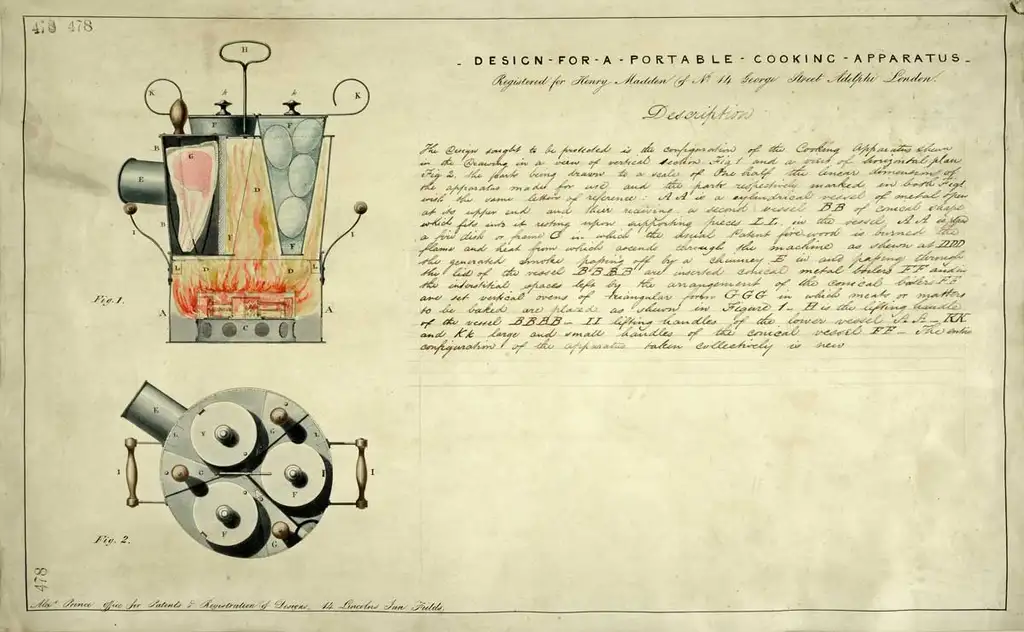 479 478
- DESIGN - FOR - A - PORTABLE - COOKING - APPARATUS -
Registered for Henry Madden of No. 14 George Street Adelphi London.
Description
The Design sought to be protected is the configuration of the Cooking Apparatus shewn
in the Drawing in a view of vertical section, Fig 1 and a view of horizontal plan
Fig 2. the parts being drawn to a scale of One half the linear dimension of
the apparatus made for use and the parts respectively marked in both Figs
with the same letters of reference. A A is a cylindrical vessel of metal open
at its upper end and then receiving a second vessel BB of conical shape
which fits into it resting upon supporting pieces LL, in the vessel A A is
a fire dish or frame C in which the usual Patent fire wood is burned the
flame and heat from which ascends through the machine as shewn at DDD
the generated smoke passing off by a chimney E in and passing through
the lid of the vessel BBBB are inserted conical metal boilers FF and in
the interstitial spaces left by the arrangement of the conical boilers FF
are set vertical ovens of triangular form GGG in which meats or matters
to be baked are placed as shewn in Figure 1 - H is the lifting handle
of the vessel BBBB - II lifting handles of the lower vessel A A - KK
and Kk large and small handles of the conical vessel FF - The entire
configuration of the apparatus taken collectively is new
H
K
K
k
k
F
F
B
G
E
D
I
B
F
F
I
L
D
D
L
Fig. 1.
A
A
C
E
L
F
G
L
I
G
F
I
F
G
Fig. 2.
478
Alexr. Prince Office for Patents & Registration of Designs, 14 Lincolns Inn Fields.